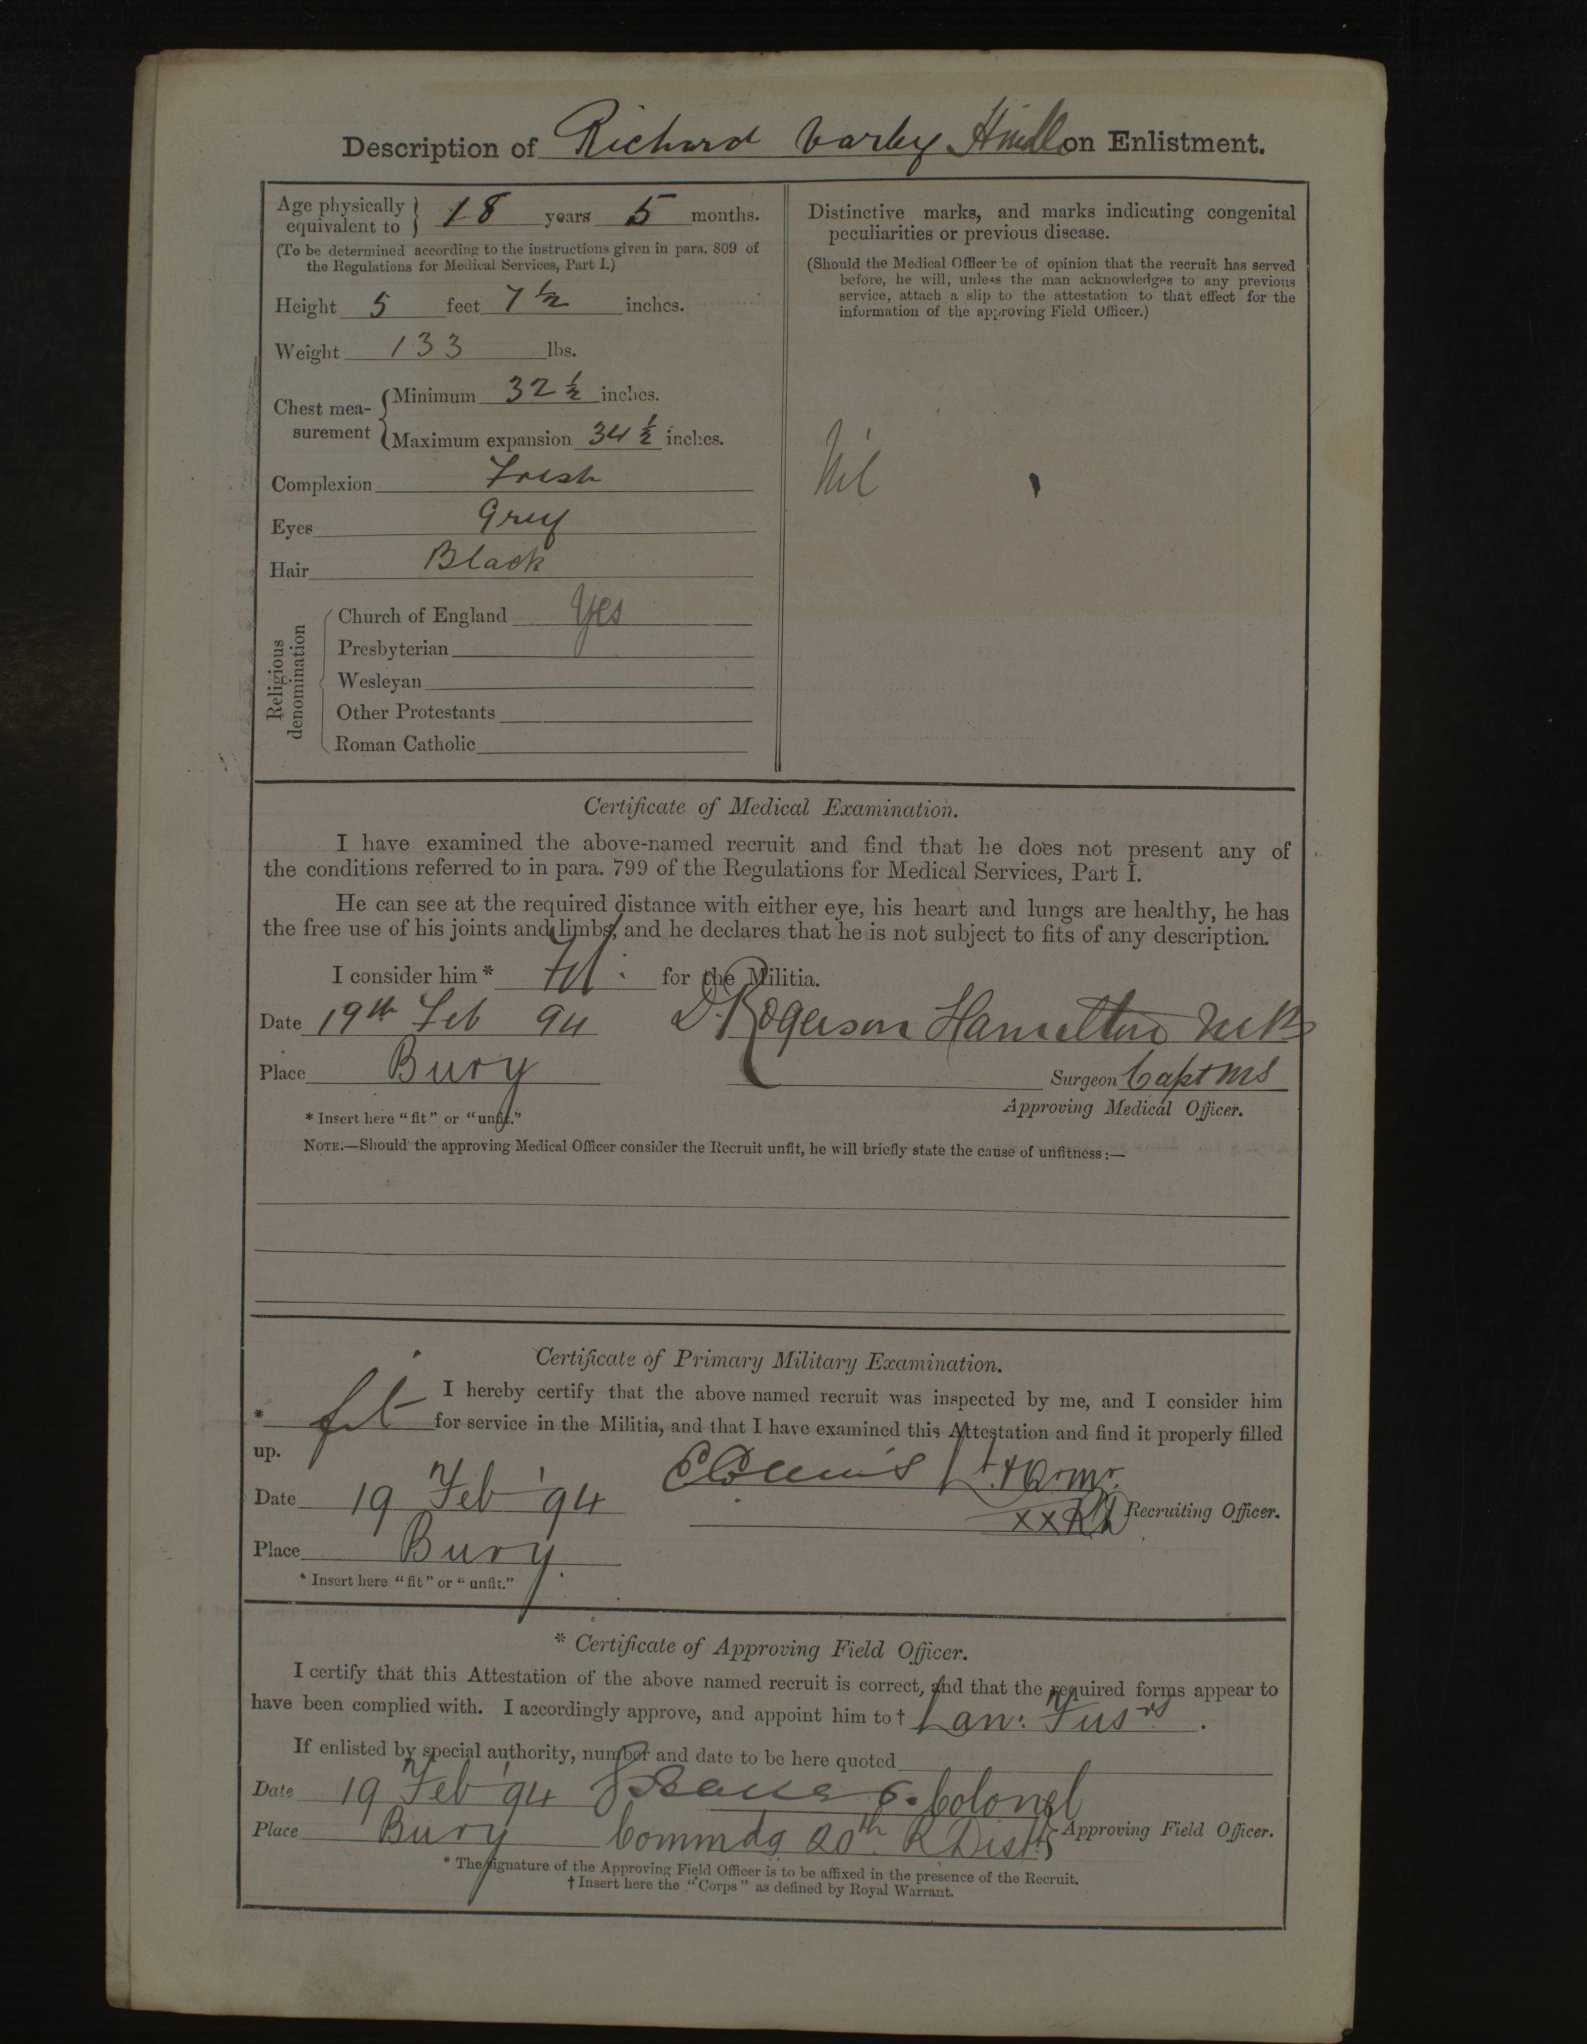 Description of Richard Varley Hindle on Enlistment.
Age physically equivalent to } 18 years 5 months.
(To be determined according to the instructions given in para. 809 of
the Regulations for Medical Services, Part I.)
Height 5 feet 7 ½ inches.
Weight 133 lbs.
Chest mea-surement { Minimum 32 ½ inches.
Maximum expansion 34 ½ inches.
Complexion Fresh
Eyes Grey
Hair Black
Religious denomination
Church of England Yes
Presbyterian
Wesleyan
Other Protestants
Roman Catholic
Distinctive marks, and marks indicating congenital
peculiarities or previous disease.
(Should the Medical Officer be of opinion that the recruit has served
before, he will, unless the man acknowledges to any previous
service, attach a slip to the attestation to that effect for the
information of the approving Field Officer.)
Nil
Certificate of Medical Examination.
I have examined the above-named recruit and find that he does not present any of
the conditions referred to in para. 799 of the Regulations for Medical Services, Part I.
He can see at the required distance with either eye, his heart and lungs are healthy, he has
the free use of his joints and limbs, and he declares that he is not subject to fits of any description.
I consider him * fit for the Militia.
Date 19th Feb 94 D. Rogerson Hamilton
Place Bury Surgeon Capt MS
Approving Medical Officer.
* Insert here "fit" or "unfit."
NOTE.—Should the approving Medical Officer consider the Recruit unfit, he will briefly state the cause of unfitness:—
Certificate of Primary Military Examination.
I hereby certify that the above named recruit was inspected by me, and I consider him
* fit for service in the Militia, and that I have examined this Attestation and find it properly filled
up.
Date 19 Feb '94
XX RD Recruiting Officer.
Place Bury
* Insert here "fit" or "unfit."
* Certificate of Approving Field Officer.
I certify that this Attestation of the above named recruit is correct, and that the required forms appear to
have been complied with. I accordingly approve, and appoint him to † Lan: Fusrs.
If enlisted by special authority, number and date to be here quoted
Date 19 Feb '94 Colonel
Place Bury Commdg 20th R Distt Approving Field Officer.
* The signature of the Approving Field Officer is to be affixed in the presence of the Recruit.
† Insert here the "Corps" as defined by Royal Warrant.